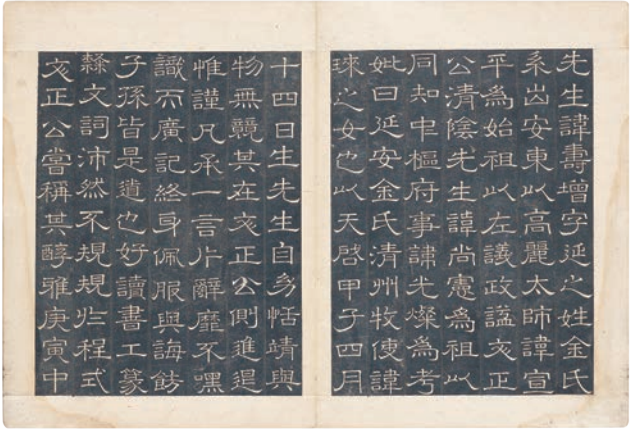 先生諱壽增字延之姓金氏
系出安東以高麗太師諱宣
平爲始祖以左議政諡文正
公清陰先生諱尚憲爲祖以
同知中樞府事諱光燦爲考
妣曰延安金氏清州牧使諱
琜之女也以天啓甲子四月
十四日生先生自幼恬靖與
物無競其在文正公側進退
惟謹凡承一言片辭靡不嘿
識而廣記終身佩服與誨飭
子孫皆是道也好讀書工篆
隸文詞沛然不規規於程式
文正公嘗稱其醇雅庚寅中